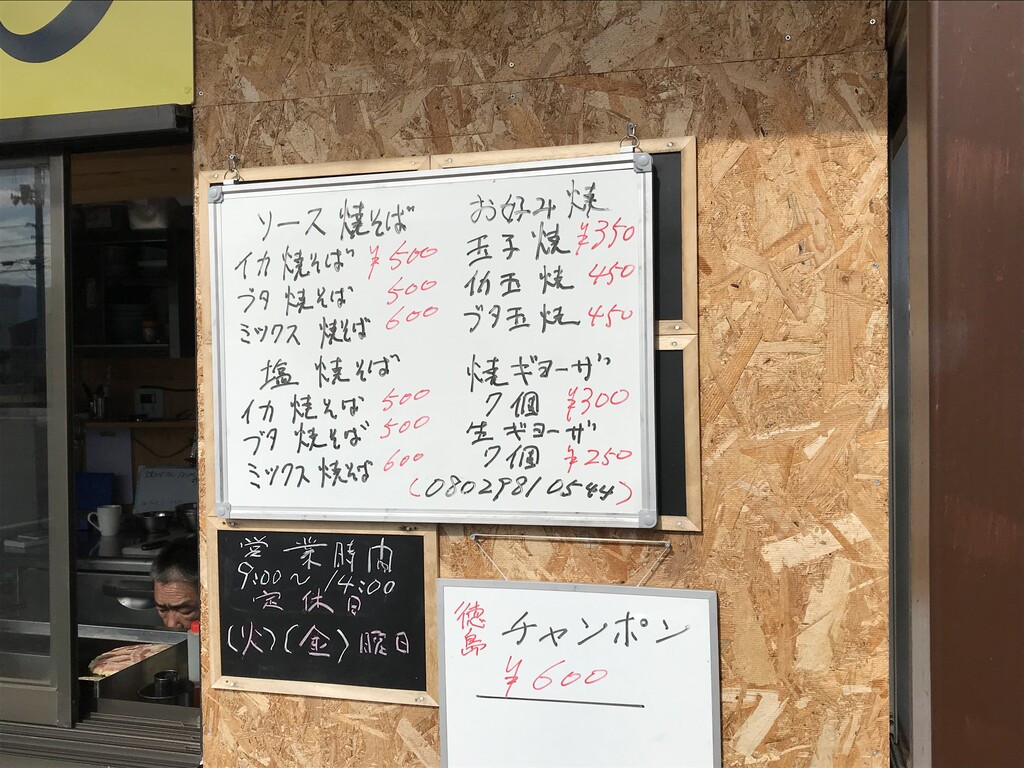 ソース焼そば
イカ焼そば ¥500
ブタ焼そば 500
ミックス焼そば 600
塩焼そば
イカ焼そば 500
ブタ焼そば 500
ミックス焼そば 600
お好み焼
玉子焼 ¥350
イカ玉焼 450
ブタ玉焼 450
焼ギョーザ
7個 ¥300
生ギョーザ
7個 ¥250
(08029810544)
営業時間
9:00~14:00
定休日
(火)(金)曜日
徳島
チャンポン
¥600